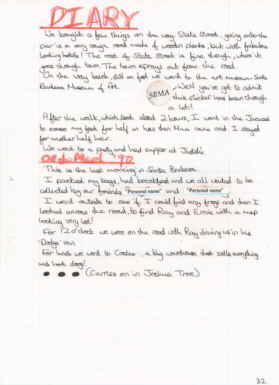 DIARY
We bought a few things on the way State Street, going onto the
pier is a very rough road made of wooden planks, but with fabulous
looking hotels! The rest of State Street is fine though, when it
goes through town. The town sprays out from the road.
On the way back, still on foot we went to the art museum Santa
Barbara Museum of Art.
SBMA
Well you've got to admit
this sticker has been through
a lot!
After the walk, which took about 2 hours, I went in the Jacuzzi
to for half an hour than Mum came and I stayed
for another half hour.
We went to a party and had supper at Judith's
'90
This is the last morning in Santa Barbara
I packed my bags, had breakfast and we all waited to be
collected by our friends "Personal name" and "Personal name"
I went outside to see if I could find any frogs and then I
looked across the road, to find Ray and Ernie with a map
looking very lost!
For 12 o'clock we were on the road with Ray driving us in his
'Dodge' van.
For lunch we went to , a big warehouse that sells everything
and hot dogs!
● ● ● (Carries on in Joshua Tree)
32